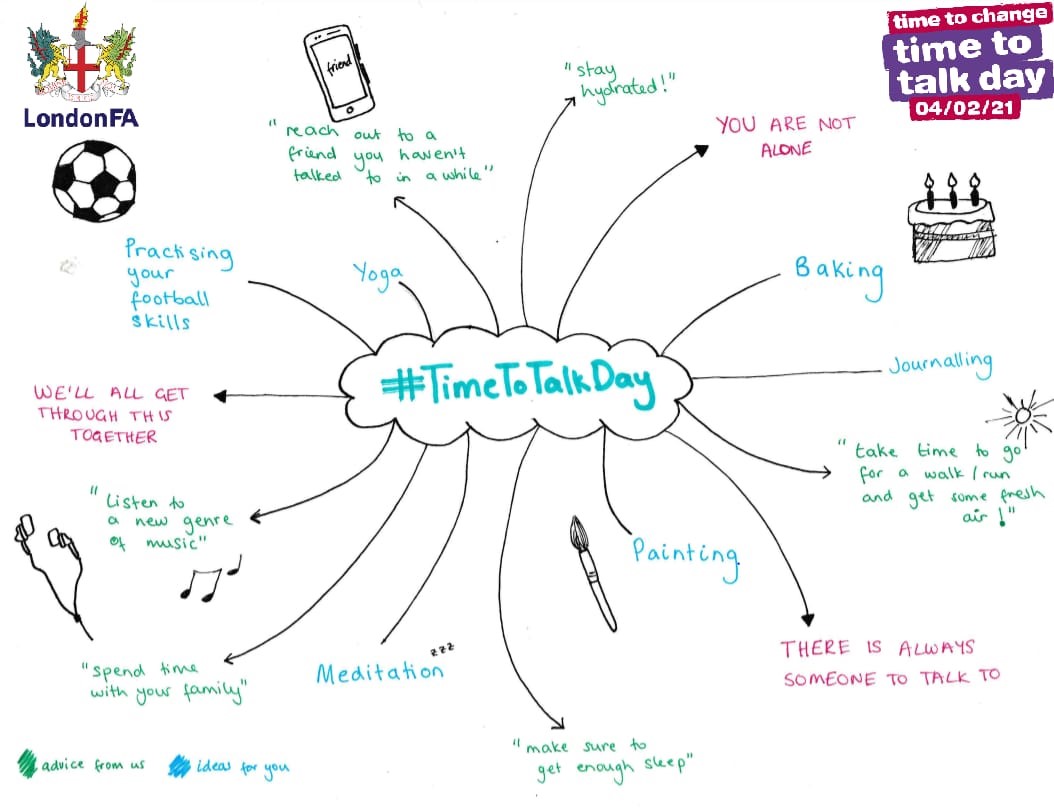 LondonFA
time to change
time to
talk day
04/02/21
friend
"reach out to a
friend you haven't
talked to in a while"
"stay
hydrated!"
YOU ARE NOT
ALONE
Practising
your
football
skills
Yoga
Baking
#TimeToTalkDay
Journalling
WE'LL ALL GET
THROUGH THIS
TOGETHER
"take time to go
for a walk/run
and get some fresh
air!"
"Listen to
a new genre
of music"
Painting
THERE IS ALWAYS
SOMEONE TO TALK TO
"spend time
with your family"
zzz
Meditation
"make sure to
get enough sleep"
advice from us
ideas for you